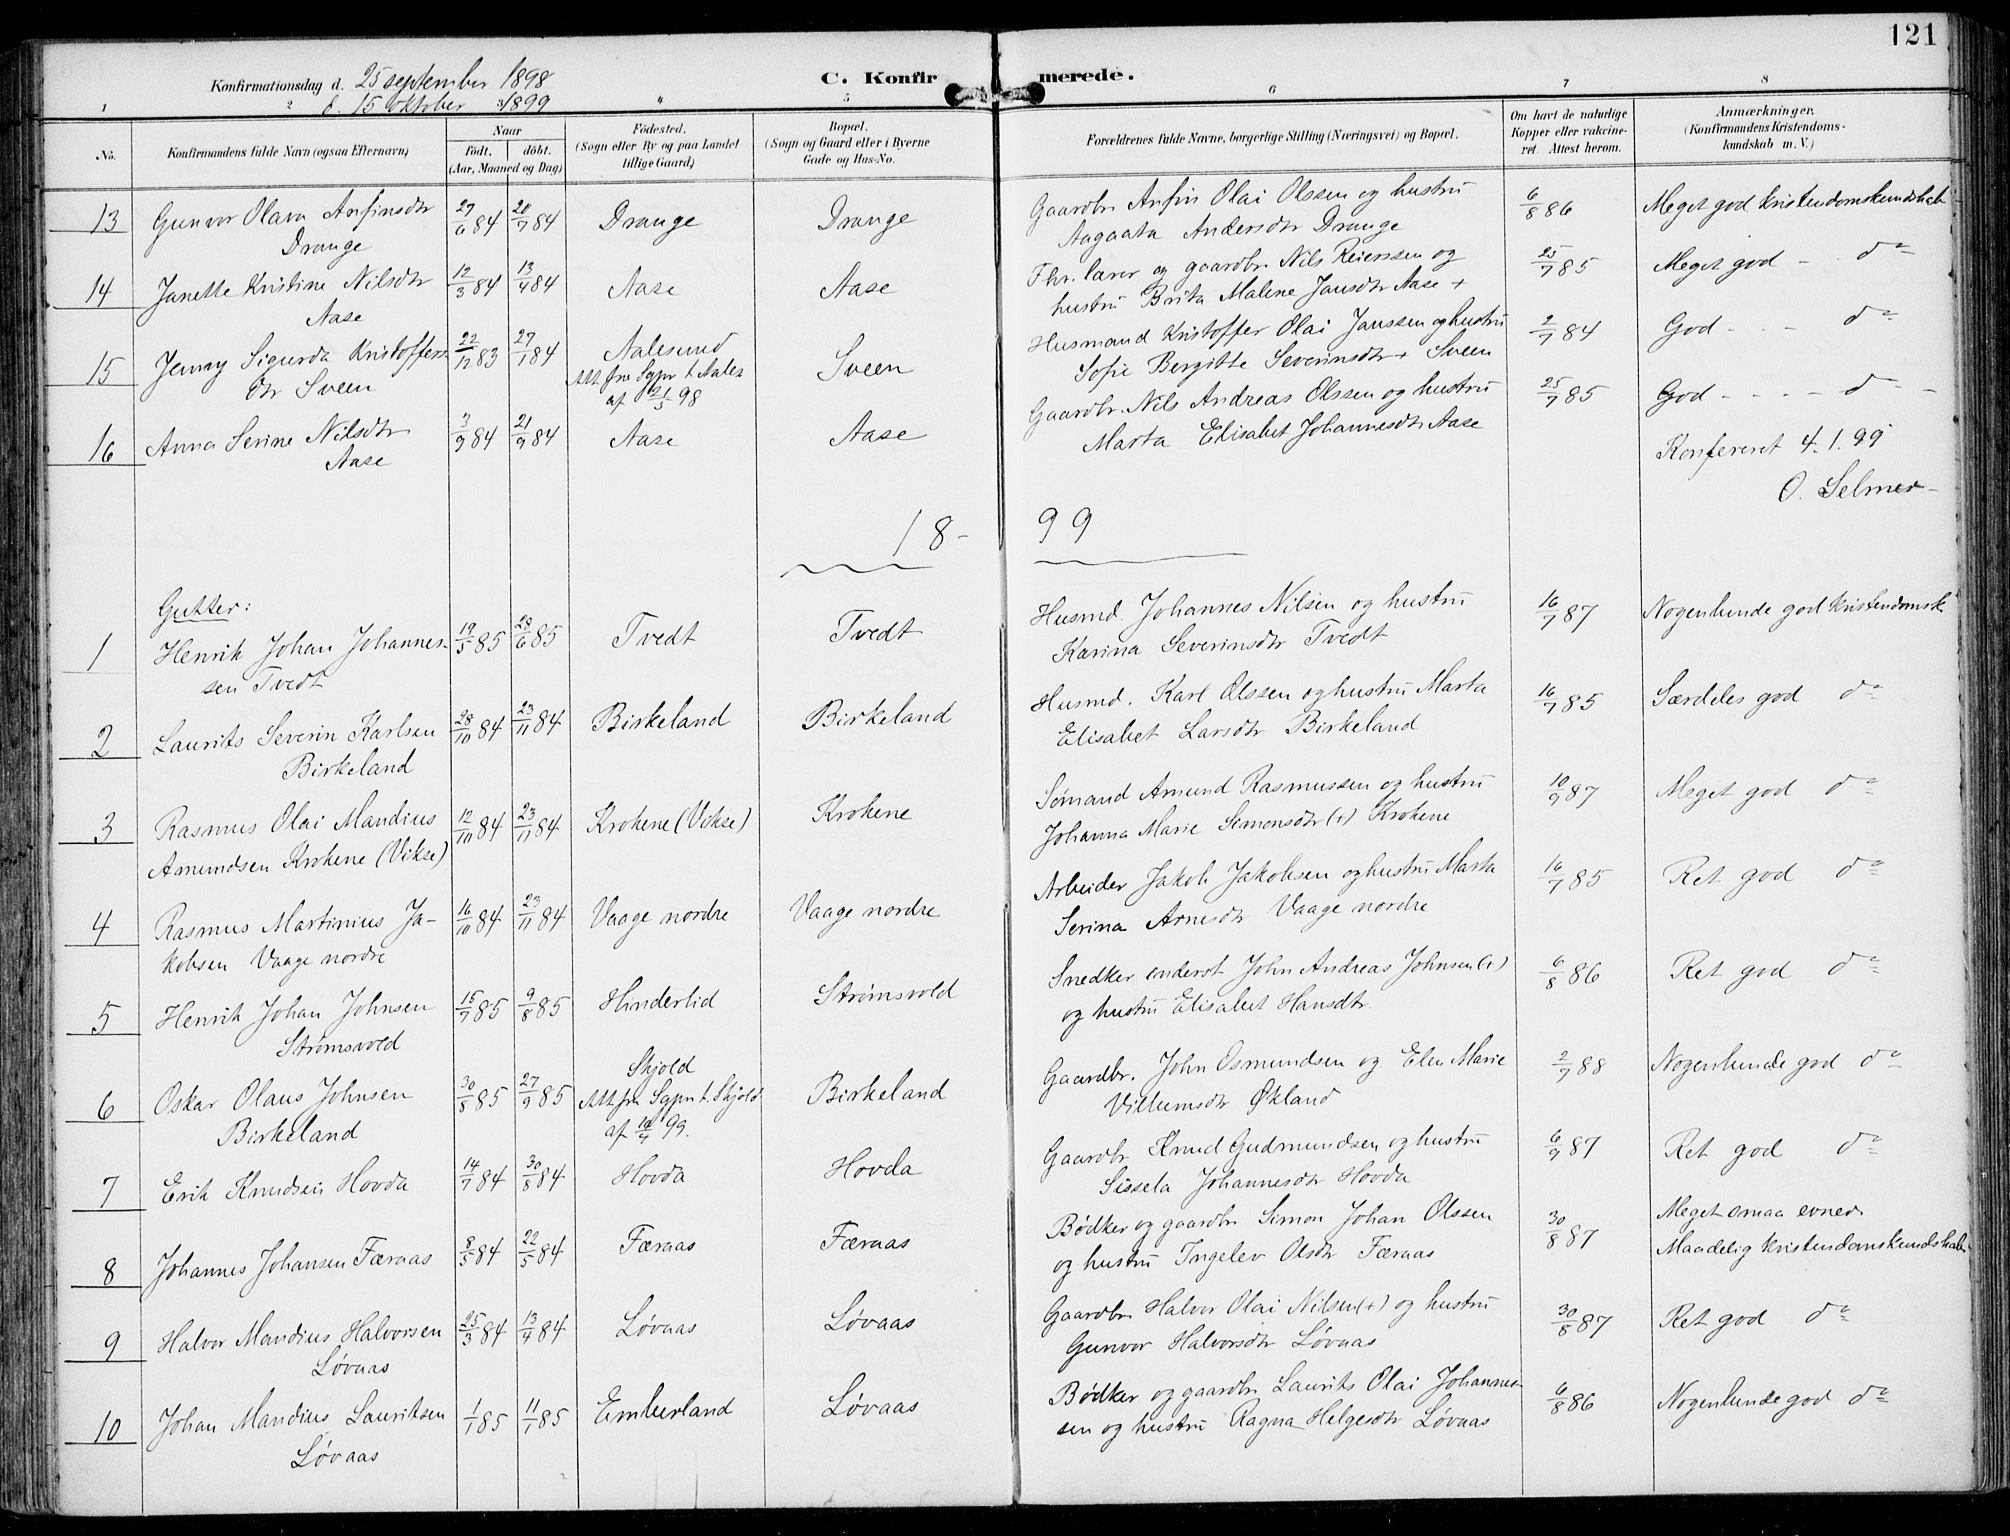 121
Konfirmationsdag d. 25 september 1898
d. 15 oktober 1899
C. Konfirmerede.
1 2 3 " 5 6 7 8
No. Konfirmandens fulde Navn (ogsaa Efternavn)
Naar
Födt. döbt.
(Aar, Maaned og Dag)
Födested.
(Sogn eller By og paa Landet
tillige Gaard)
Bopæl.
(Sogn og Gaard eller i Byerne
Gade og Hus-No.
Forældrenes fulde Navne, borgerlige Stilling (Næringsvei) og Bopæl.
Om havt de naturlige
Kopper eller vakcine-
ret. Attest herom.
Anmærkninger,
(Konfirmandens Kristendoms-
kundskab m. V.)
13 Gunvor Olava Anfinsdtr 27/6 84 20/7 84 Drange Drange Gaardbr. Anfin Olai Olssen og hustru 6/8 86 Meget god kristendomskundskab
Drange Aagaata Andersdtr Drange
14 Janette Kristine Nilsdtr 12/3 84 13/4 84 Aase Aase Fhr. lærer og gaardbr. Nils Reierssen og 25/7 85 Meget god - . do
Aase hustru Brita Malene Jansdtr Aase +
15 Jenny Sigurda Kristoffers- 22/12 83 27/1 84 Aalesund Sveen Husmand Kristoffer Olai Janssen og hustru 2/7 84 God - . - do
dtr Sveen Att. fra Sgpr t. Aales. Sofie Bergitte Severinsdtr + Sveen
af 21/5 98
16 Anna Serine Nilsdtr 3/9 84 21/9 84 Aase Aase Gaardbr. Nils Andreas Olssen og hustru 25/7 85 God - - - - do -
Aase Marta Elisabet Johannesdtr Aase
Konfereret 4.1.99
O. Selmer
18-99
Gutter:
1 Henrik Johan Johannes- 19/5 85 28/6 85 Tvedt Tvedt Husmd. Johannes Nilsen og hustru 16/7 87 Nogenlunde god kristendomsk
sen Tvedt Karina Severinsdtr Tvedt
2 Laurits Severin Karlsen 28/10 84 23/11 84 Birkeland Birkeland Husmd. Karl Olssen og hustru Marta 16/7 85 Særdeles god do
Birkeland Elisabet Larsdtr Birkeland
3 Rasmus Olai Mandius 12/10 84 23/11 84 Krokene (Vikse) Krokene Sømand Amund Rasmussen og hustru 10/9 87 Meget god do
Amundsen Krokene (Vikse) Johanna Marie Simonsdtr (+) Krokene
4 Rasmus Martinius Ja- 16/10 84 23/11 84 Vaage nordre Vaage nordre Arbeider Jakob Jakobsen og hustru Marta 16/7 85 Ret god do
kobsen Vaage nordre Serina Arnesdtr Vaage nordre
5 Henrik Johan Johnsen 15/7 85 9/8 85 Hinderlid Strømsvold Snedker John Andreas Johnsen (+) 6/8 86 Ret god do
Strømsvold og hustru Elisabet Hansdtr.
6 Oskar Olaus Johnsen 30/8 85 27/9 85 Skjold Birkeland Gaardbr. John Osmundsen og Elen Marie 2/7 88 Nogenlunde god do
Birkeland Att. fra Sgpr. t. Skjold Villumsdtr Økland
af 99.
7 Erik Knudsen Hovda 14/7 84 30/8 84 Hovda Hovda Gaardbr Knud Gudmundsen og hustru 6/9 87 Ret god do
Sissela Johannesdtr Hovda
8 Johannes Johansen Færaas 8/5 84 22/5 84 Færaas Færaas Bødker og gaardbr Simon Johan Olssen 30/8 87 Meget smaa evner
og hustru Ingelev Olsdtr Færaas Maadelig kristendomskundskab
9 Halvor Mandius Halvorsen 25/3 84 13/4 84 Løvaas Løvaas Gaardbr. Halvor Olai Nilsen (+) og hustru 30/8 87 Ret god do
Løvaas Gunvor Halvorsdtr Løvaas
10 Johan Mandius Lauritsen 1/1 85 11/1 85 Emberland Løvaas Bødker og gaardbr Laurits Olai Johannes- 6/8 86 Nogenlunde god do
Løvaas sen og hustru Ragna Helgesdtr Løvaas